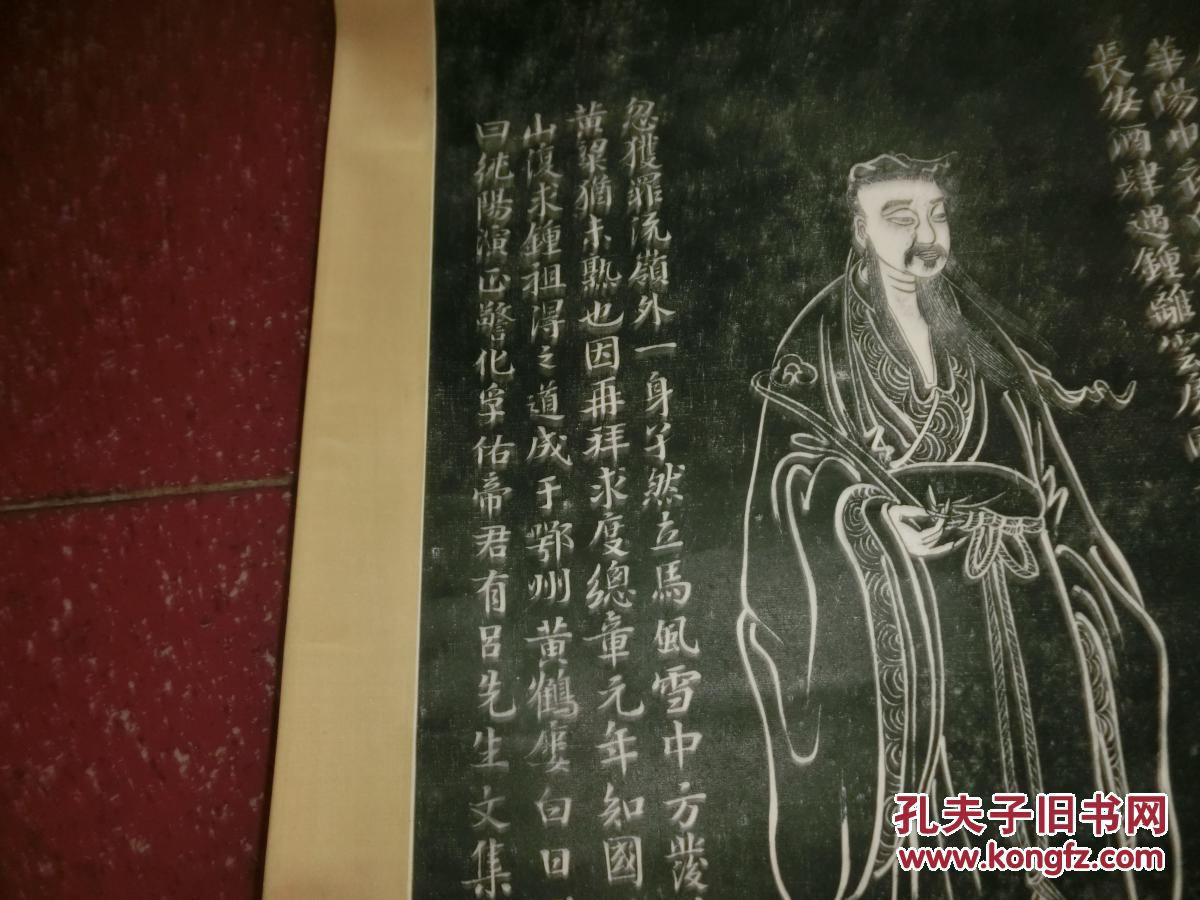 華陽巾
長安酒肆遇鍾離雲房
忽獲罪流嶺外一身孑然立馬風雪中方
黃粱猶未熟也因再拜求度總章元年知國
山復求鍾祖得之道成于鄂州黃鶴樓白日
曰純陽演正警化孚佑帝君有呂先生文集
孔夫子旧书网
www.kongfz.com